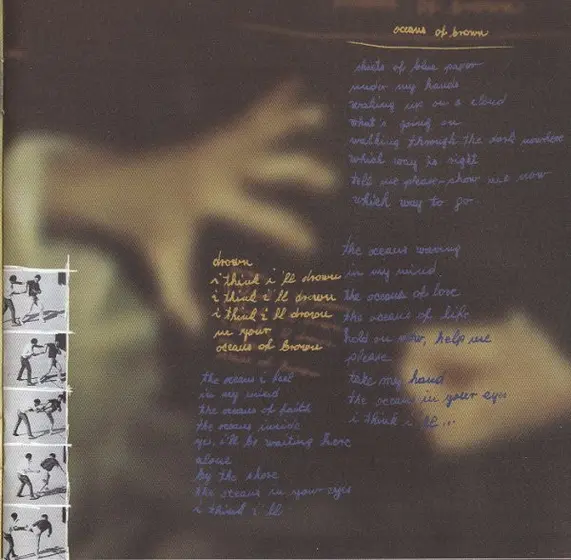 oceans of brown
sheets of blue paper
under my hands
waking up on a cloud
what's going on
walking through the dark nowhere
which way is right
tell me please-show me now
which way to go.
the oceans waving
in my mind.
the oceans of love
the oceans of life
hold on now, help me
please
take my hand
the oceans in your eyes
i think i'll...
drown
i think i'll drown
i think i'll drown
i think i'll drown
in your
oceans of brown
the oceans i
in my mind
the oceans of faith
the oceans inside
yes, i'll be waiting here
alone
by the shore
the oceans in your eyes
i think i'll